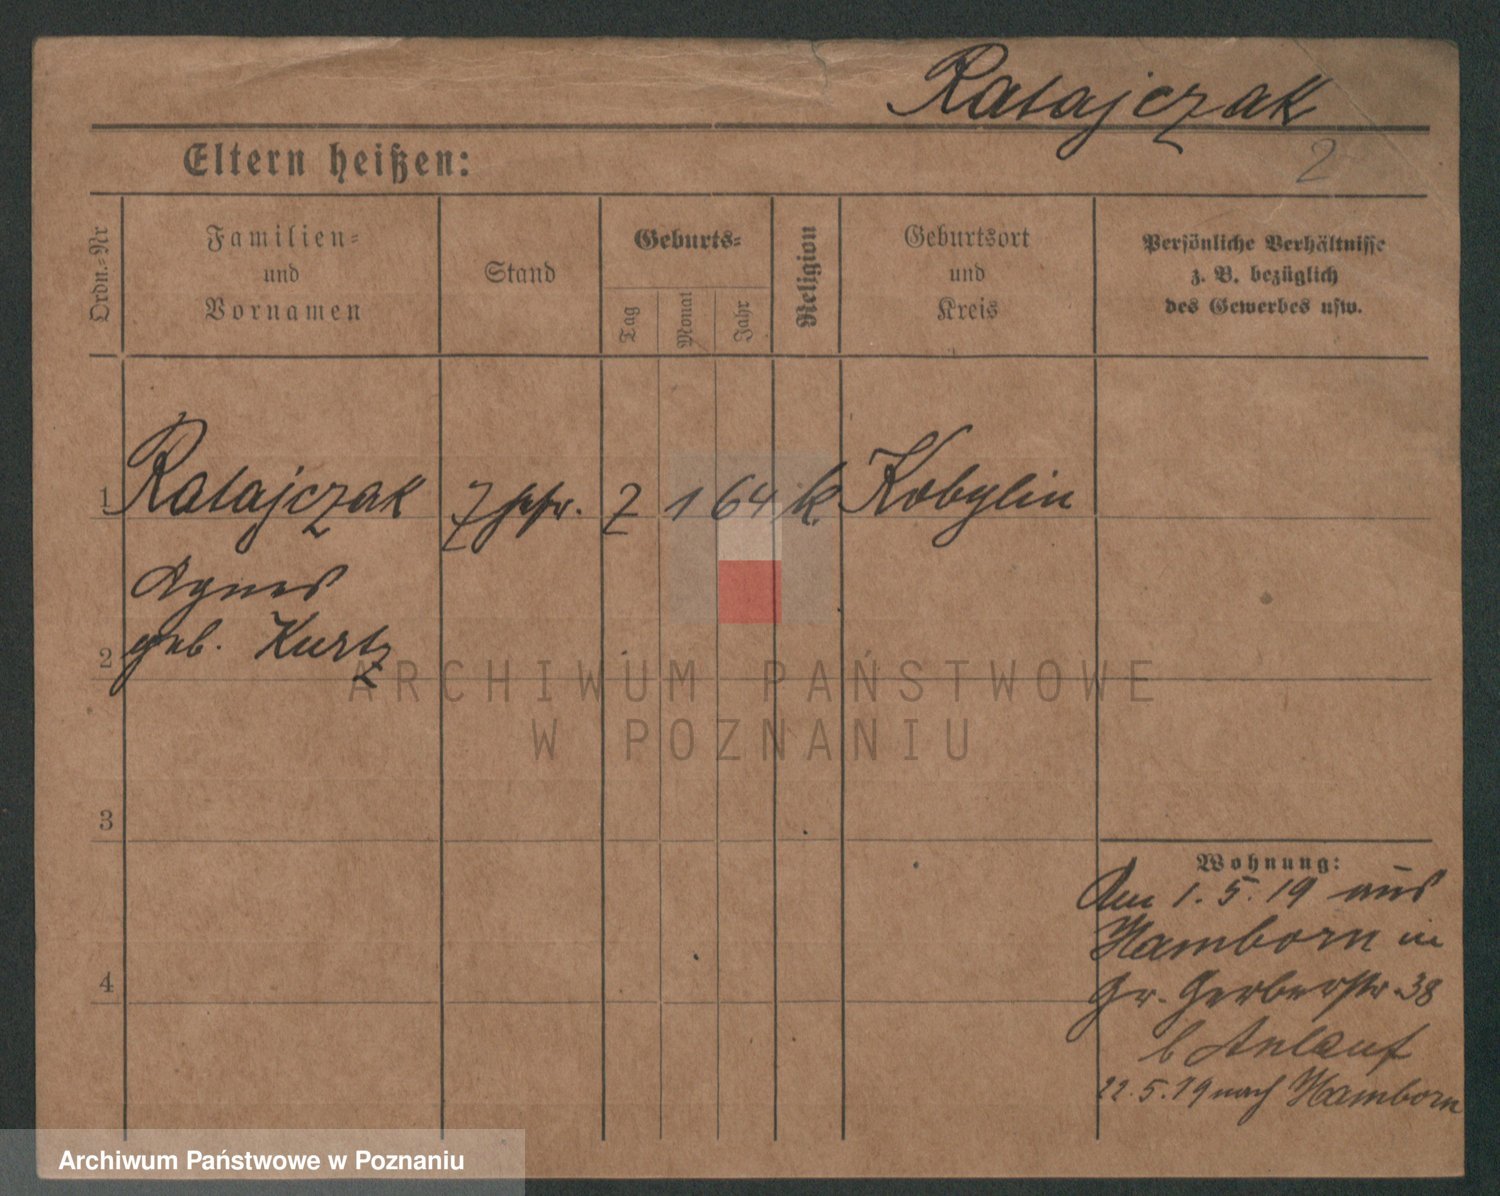 Ratajczak
2
Eltern heißen:
Ordn.-Nr
Familien-
und
Vornamen
Stand
Geburts-
Tag
Monat
Jahr
Religion
Geburtsort
und
Kreis
Persönliche Verhältnisse
z. B. bezüglich
des Gewerbes usw.
1 Ratajczak 7 1 64 k. Kobylin
Agnes
geb. Kurtz
2
3
4
Wohnung:
Am 1.5.19 aus
Hamborn in
Gr. Gerberstr. 38
b Anlauf
22.5.19 nach Hamborn
ARCHIWUM PAŃSTWOWE
W POZNANIU
Archiwum Państwowe w Poznaniu